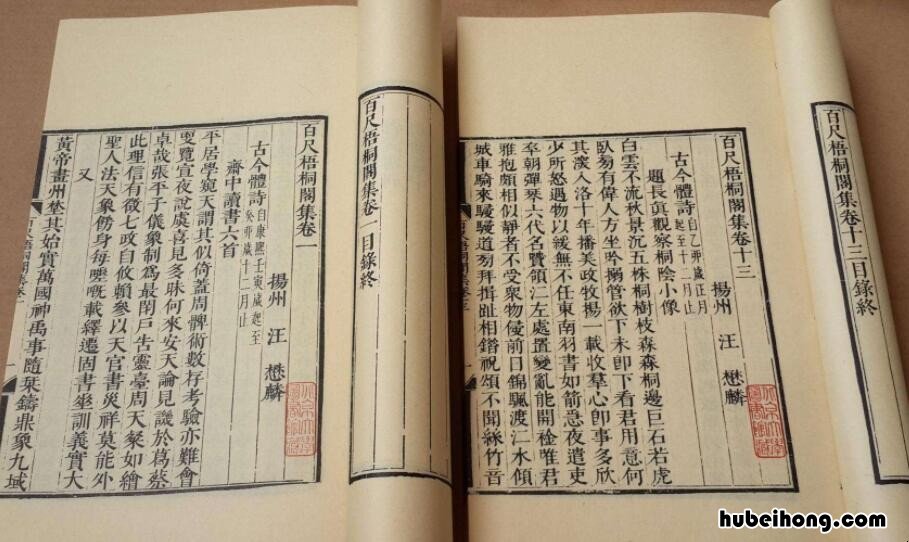 百尺梧桐閣集卷一目錄終
百尺梧桐閣集卷一
揚州 汪 懋麟
古今體詩 自康熙壬寅歲起至
癸卯歲十二月止
齋中讀書六首
平居學窺天謂其似倚蓋周髀術數存考驗亦難會
更覽宣夜說虞喜見多昧何來安天論見譏於葛蔡
卓哉張平子儀象制爲最閉戶告靈臺周天粲如繪
此理信有徵七政自攸賴參以天官書災祥莫能外
聖人法天象側身每嘅載繹遷固書坐訓義實大
又
黃帝畫州埜其始實萬國神禹事隨栞鑄鼎象九域
百尺梧桐閣集卷十三目錄終
百尺梧桐閣集卷十三
揚州 汪 懋麟
古今體詩 自乙卯歲正月
起至十二月止
題長真觀察桐陰小像
白雲不流秋景沉五株桐樹枝森森桐邊巨石若虎
臥旁有偉人方坐吟搦管欲下未即下看君用意何
其深入洛十年播美政牧揚一載收羣心卽事多欣
少所怒遇物以緩無不任東南羽書如箭急夜遣吏
卒朝彈琴六代名賢領江左處置變亂能開襟唯君
雅抱頗相似靜者不受衆物侵前日錦颿渡江水傾
城車騎來駸駸道旁拜揖趾相錯祝頌不聞絲竹音
hubeihong.com